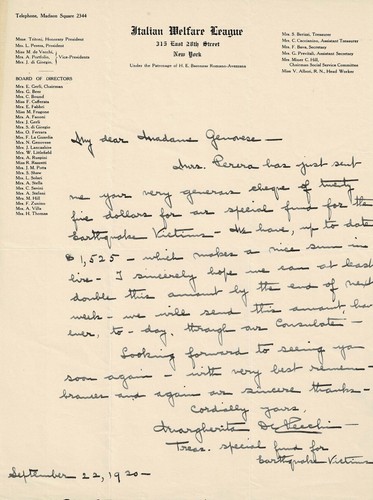 Telephone, Madison Square 2344
Italian Welfare League
315 East 20th Street
New York
Under the Patronage of H. E. Baroness Romano-Avezzana
Mme. Tritoni, Honorary President
Mrs. L. Perera, President
Miss M. de Vecchi,
Mrs. A. Portfolio,
Mrs. J. di Giorgio,
Vice-Presidents
Mrs. S. Bertini, Treasurer
Mrs. C. Crocimanino, Assistant Treasurer
Mrs. F. Bava, Secretary
Mrs. G. Previtali, Assistant Secretary
Mrs. Moses C. Hill,
Chairman Social Service Committee
Miss V. Alloni, R. N., Head Worker
BOARD OF DIRECTORS
Mrs. E. Gerli, Chairman
Mrs. G. Bosc
Mrs. C. Bound
Miss F. Cafferata
Mrs. E. Fabbri
Miss M. Frugone
Mrs. A. Fasoni
Mrs. J. Gerli
Mrs. S. di Giorgio
Mrs. O. Ferrara
Mrs. F. La Guardia
Mrs. N. Genovese
Mrs. J. Lancashire
Mrs. W. Littlefield
Mrs. A. Ruspini
Mrs. N. Rossetti
Mrs. J. M. Porta
Mrs. S. Shaw
Mrs. L. Soleri
Mrs. A. Stella
Mrs. C. Savini
Mrs. A. Stefani
Mrs. M. Hill
Mrs. F. Zunino
Mrs. A. Villa
Mrs. H. Thomas
My dear Madame Genovese —
Mrs. Perera has just sent
me your very generous cheque of twenty
five dollars for our special fund for the
Earthquake Victims — We have, up to date
$1,525 — which makes a nice sum in
lire — I sincerely hope we can at least
double this amount by the end of next
week — we will send this amount, how-
ever, to-day, through our Consulate —
Looking forward to seeing you
soon again — with very best remem-
brances and again our sincere thanks —
Cordially yours,
Margherita De Vecchi —
Treas. special fund for
Earthquake Victims
September 22, 1920 —